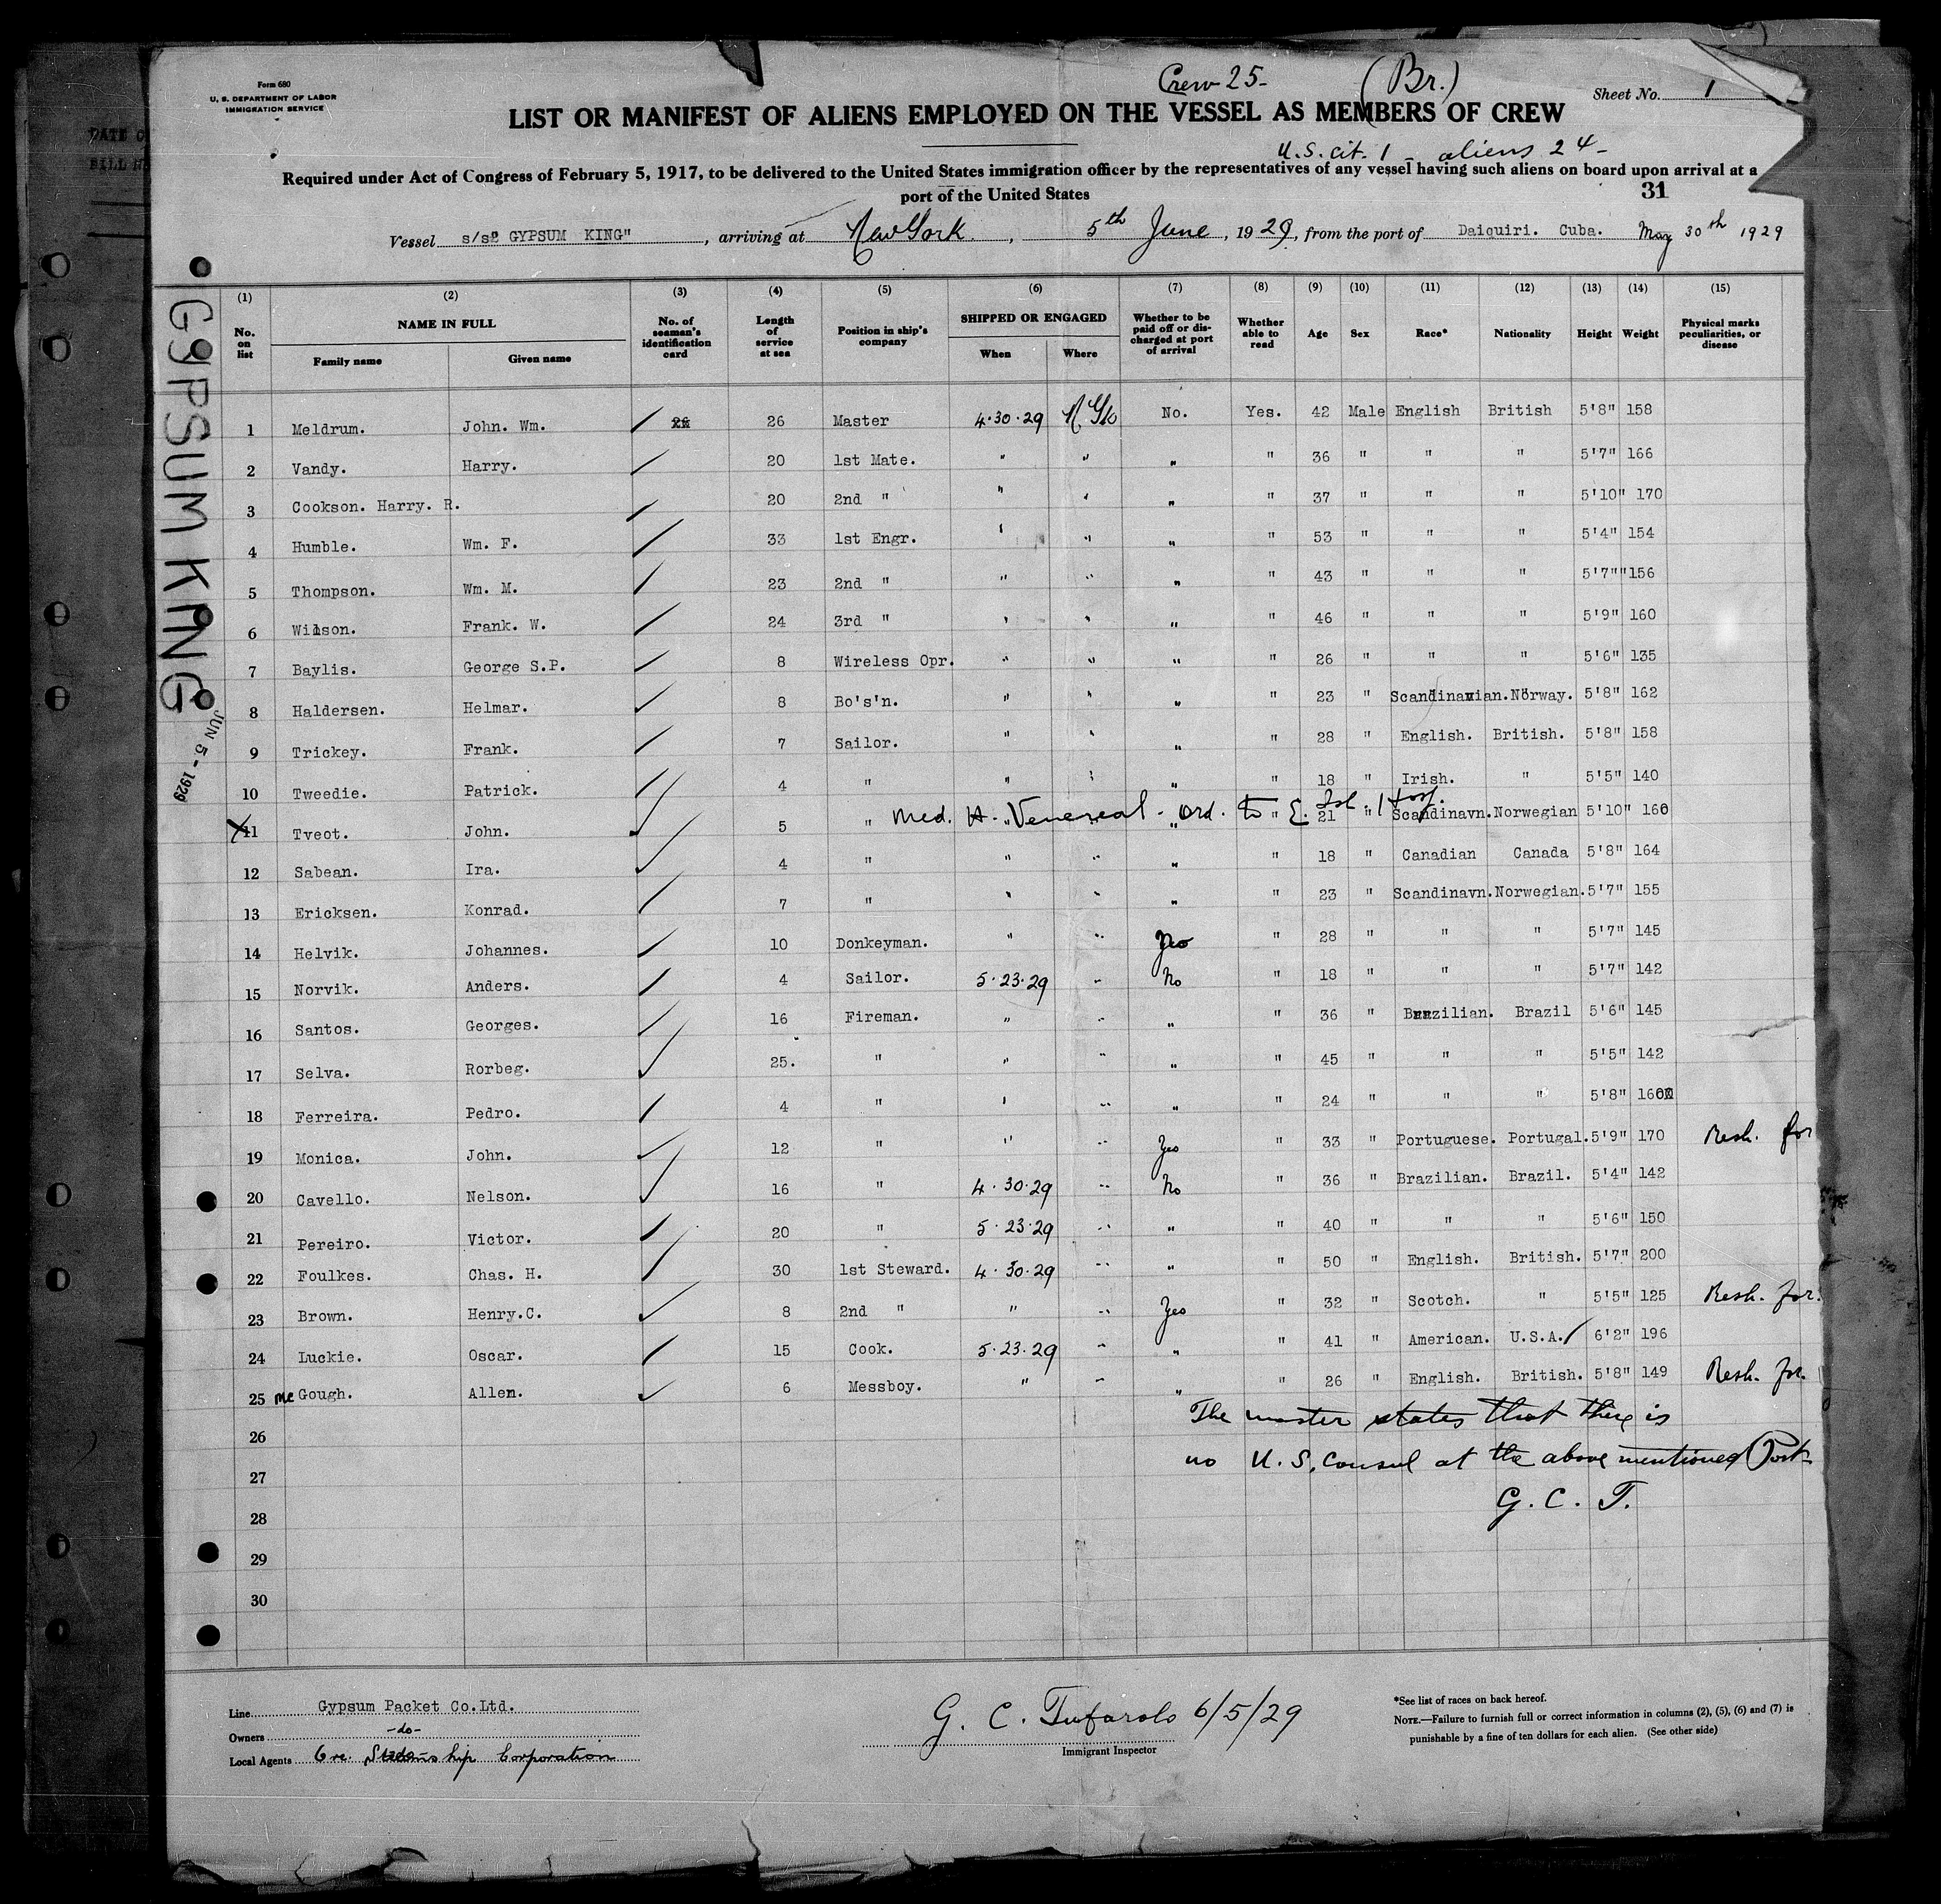 Form 680
U. S. DEPARTMENT OF LABOR
IMMIGRATION SERVICE
Crew 25- (Br.)
Sheet No. 1
LIST OR MANIFEST OF ALIENS EMPLOYED ON THE VESSEL AS MEMBERS OF CREW
U.S. cit. 1 - aliens 24-
Required under Act of Congress of February 5, 1917, to be delivered to the United States immigration officer by the representatives of any vessel having such aliens on board upon arrival at a
port of the United States
31
Vessel s/s" GYPSUM KING" , arriving at New York , 5th June , 1929, from the port of Daiquiri. Cuba. May 30th 1929
GYPSUM KING
JUN 5 - 1929
(1) (2) (3) (4) (5) (6) (7) (8) (9) (10) (11) (12) (13) (14) (15)
No. on list NAME IN FULL Family name Given name No. of seaman's identification card Length of service at sea Position in ship's company SHIPPED OR ENGAGED When Where Whether to be paid off or discharged at port of arrival Whether able to read Age Sex Race* Nationality Height Weight Physical marks peculiarities, or disease
1 Meldrum. John. Wm. 26 Master 4.30.29 N Yk No. Yes. 42 Male English British 5'8" 158
2 Vandy. Harry. 20 1st Mate. " " " " 36 " " " 5'7" 166
3 Cookson. Harry. R. 20 2nd " " " " " 37 " " " 5'10" 170
4 Humble. Wm. F. 33 1st Engr. " " " " 53 " " " 5'4" 154
5 Thompson. Wm. M. 23 2nd " " " " " 43 " " " 5'7"" 156
6 Wilson. Frank. W. 24 3rd " " " " " 46 " " " 5'9" 160
7 Baylis. George S.P. 8 Wireless Opr. " " " " 26 " " " 5'6" 135
8 Haldersen. Helmar. 8 Bo's'n. " " " " 23 " Scandinavian. Norway. 5'8" 162
9 Trickey. Frank. 7 Sailor. " " " " 28 " English. British. 5'8" 158
10 Tweedie. Patrick. 4 " " " " " 18 " Irish. " 5'5" 140
Med. H. Venereal - ord. to E. Isl. Hosp.
X 11 Tveot. John. 5 " " " " 21 " Scandinavn. Norwegian 5'10" 160
12 Sabean. Ira. 4 " " " " " 18 " Canadian Canada 5'8" 164
13 Ericksen. Konrad. 7 " " " " " 23 " Scandinavn. Norwegian. 5'7" 155
14 Helvik. Johannes. 10 Donkeyman. " " Yes " 28 " " " 5'7" 145
15 Norvik. Anders. 4 Sailor. 5.23.29 " No " 18 " " " 5'7" 142
16 Santos. Georges. 16 Fireman. " " " " 36 " Brazilian. Brazil 5'6" 145
17 Selva. Rorbeg. 25. " " " " " 45 " " " 5'5" 142
18 Ferreira. Pedro. 4 " " " " " 24 " " " 5'8" 160
19 Monica. John. 12 " " " Yes " 33 " Portuguese. Portugal. 5'9" 170 Resh. for
20 Cavello. Nelson. 16 " 4.30.29 " No " 36 " Brazilian. Brazil. 5'4" 142
21 Pereiro. Victor. 20 " 5.23.29 " " " 40 " " " 5'6" 150
22 Foulkes. Chas. H. 30 1st Steward. 4.30.29 " " " 50 " English. British. 5'7" 200
23 Brown. Henry.C. 8 2nd " " " Yes " 32 " Scotch. " 5'5" 125 Resh. for.
24 Luckie. Oscar. 15 Cook. 5.23.29 " " " 41 " American. U.S.A. 6'2" 196
25 Mc Gough. Allen. 6 Messboy. " " " " 26 " English. British. 5'8" 149 Resh. for.
The master states that there is
26
no U.S. Consul at the above mentioned Port-
27
G. C. T.
28
29
30
Line Gypsum Packet Co.Ltd.
Owners -do-
Local Agents Ore Steamship Corporation
G. C. Tufarolo 6/5/29
Immigrant Inspector
*See list of races on back hereof.
NOTE.—Failure to furnish full or correct information in columns (2), (5), (6) and (7) is
punishable by a fine of ten dollars for each alien. (See other side)